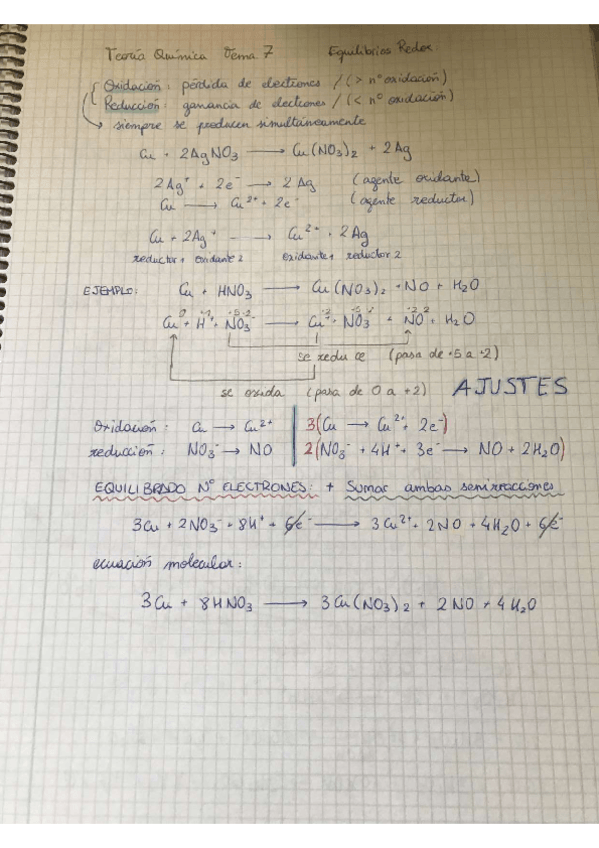 Teoría Química Tema 7 Equilibrios Redox
Oxidación: pérdida de electrones / (> nº oxidación)
Reducción: ganancia de electrones / (< nº oxidación)
→ siempre se producen simultáneamente
Cu + 2AgNO₃ → Cu(NO₃)₂ + 2Ag
2Ag⁺ + 2e⁻ → 2Ag (agente oxidante)
Cu → Cu²⁺ + 2e⁻ (agente reductor)
Cu + 2Ag⁺ → Cu²⁺ + 2Ag
reductor 1 oxidante 2 oxidante 1 reductor 2
EJEMPLO: Cu + HNO₃ → Cu(NO₃)₂ + NO + H₂O
Cu + H⁺ + NO₃⁻ → Cu²⁺ + NO₃⁻ + NO + H₂O
se reduce (pasa de +5 a +2)
se oxida (pasa de 0 a +2) AJUSTES
Oxidación: Cu → Cu²⁺ | 3(Cu → Cu²⁺ + 2e⁻)
reducción: NO₃⁻ → NO | 2(NO₃⁻ + 4H⁺ + 3e⁻ → NO + 2H₂O)
EQUILIBRADO Nº ELECTRONES: + Sumar ambas semirracciones
3Cu + 2NO₃⁻ + 8H⁺ + 6e⁻ → 3Cu²⁺ + 2NO + 4H₂O + 6e⁻
ecuación molecular:
3Cu + 8HNO₃ → 3Cu(NO₃)₂ + 2NO + 4H₂O